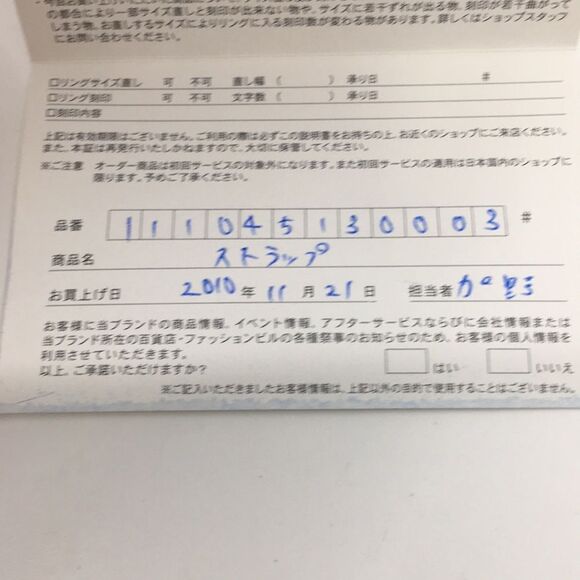 の都合により一部サイズ直しと刻印が出来ない物や、サイズに若干ずれが出る物、刻印が若干曲がって
しまう物、お直しするサイズによりリングに入る刻印数が変わる物があります。詳しくはショップスタッフ
にお問い合わせください。
□リングサイズ直し 可 不可 直し幅 ( ) 承り日 #
□リング刻印 可 不可 文字数 ( ) 承り日
□刻印内容
上記は有効期限はございません。ご利用の際は必ずこの証明書をお持ちの上、お近くのショップにご来店ください。
また、本証は再発行いたしかねますので、大切に保管してください。
※ご注意 オーダー商品は初回サービスの対象外になります。また初回サービスの適用は日本国内のショップに
限ります。予めご了承ください。
品番 111045130003 #
商品名 ストラップ
お買上げ日 2010 年 11 月 21 日 担当者
お客様に当ブランドの商品情報、イベント情報、アフターサービスならびに会社情報または
当ブランド所在の百貨店・ファッションビルの各種祭事のお知らせのため、お客様の個人情報を
利用させていただきます。
以上、ご承諾いただけますか? □はい □いいえ
※ご記入いただきましたお客様情報は、上記以外の目的で使用することはございません。